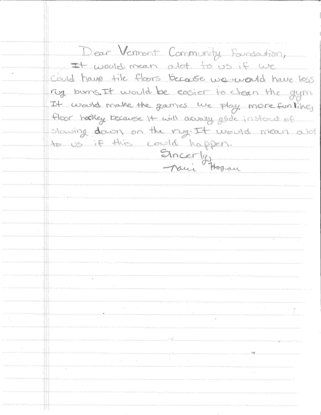 Dear Vermont Community Foundation,
It would mean alot to us if we
could have tile floors because we would have less
rug burns. It would be easier to clean the gym
It would make the games we play more fun like,
floor hockey because it will acually glide instead of
slowing down on the rug. It would mean alot
to us if this could happen.
Sincerly,